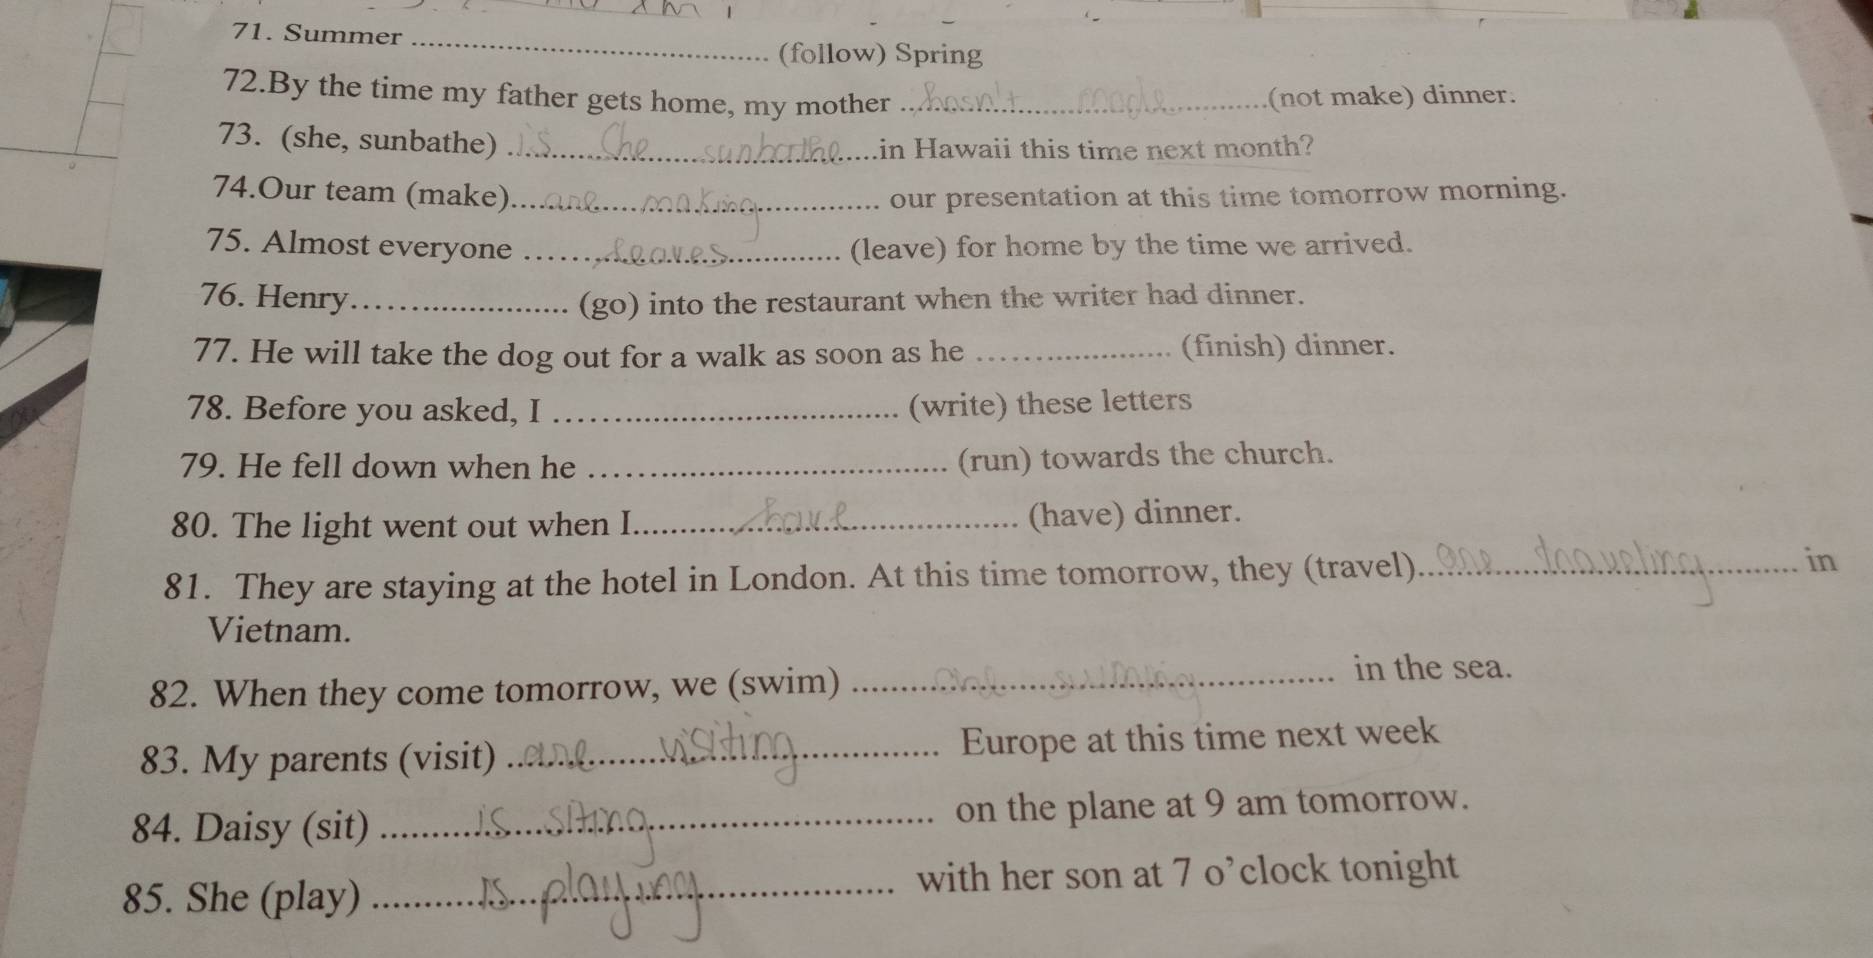 71. Summer ........................................ (follow) Spring
72.By the time my father gets home, my mother ...hasn't......made............(not make) dinner.
73. (she, sunbathe) .is....She......sunbathe....in Hawaii this time next month?
74.Our team (make)....are.....making............. our presentation at this time tomorrow morning.
75. Almost everyone ........leaves............ (leave) for home by the time we arrived.
76. Henry........................ (go) into the restaurant when the writer had dinner.
77. He will take the dog out for a walk as soon as he ...................... (finish) dinner.
78. Before you asked, I ...................................... (write) these letters
79. He fell down when he ...................................... (run) towards the church.
80. The light went out when I............have................... (have) dinner.
81. They are staying at the hotel in London. At this time tomorrow, they (travel)..are.....traveling......... in
Vietnam.
82. When they come tomorrow, we (swim) .........are.....swimming............... in the sea.
83. My parents (visit) ..are.......visiting............... Europe at this time next week
84. Daisy (sit) ..........is...siting............................. on the plane at 9 am tomorrow.
85. She (play) ...........is...playing..................... with her son at 7 o'clock tonight